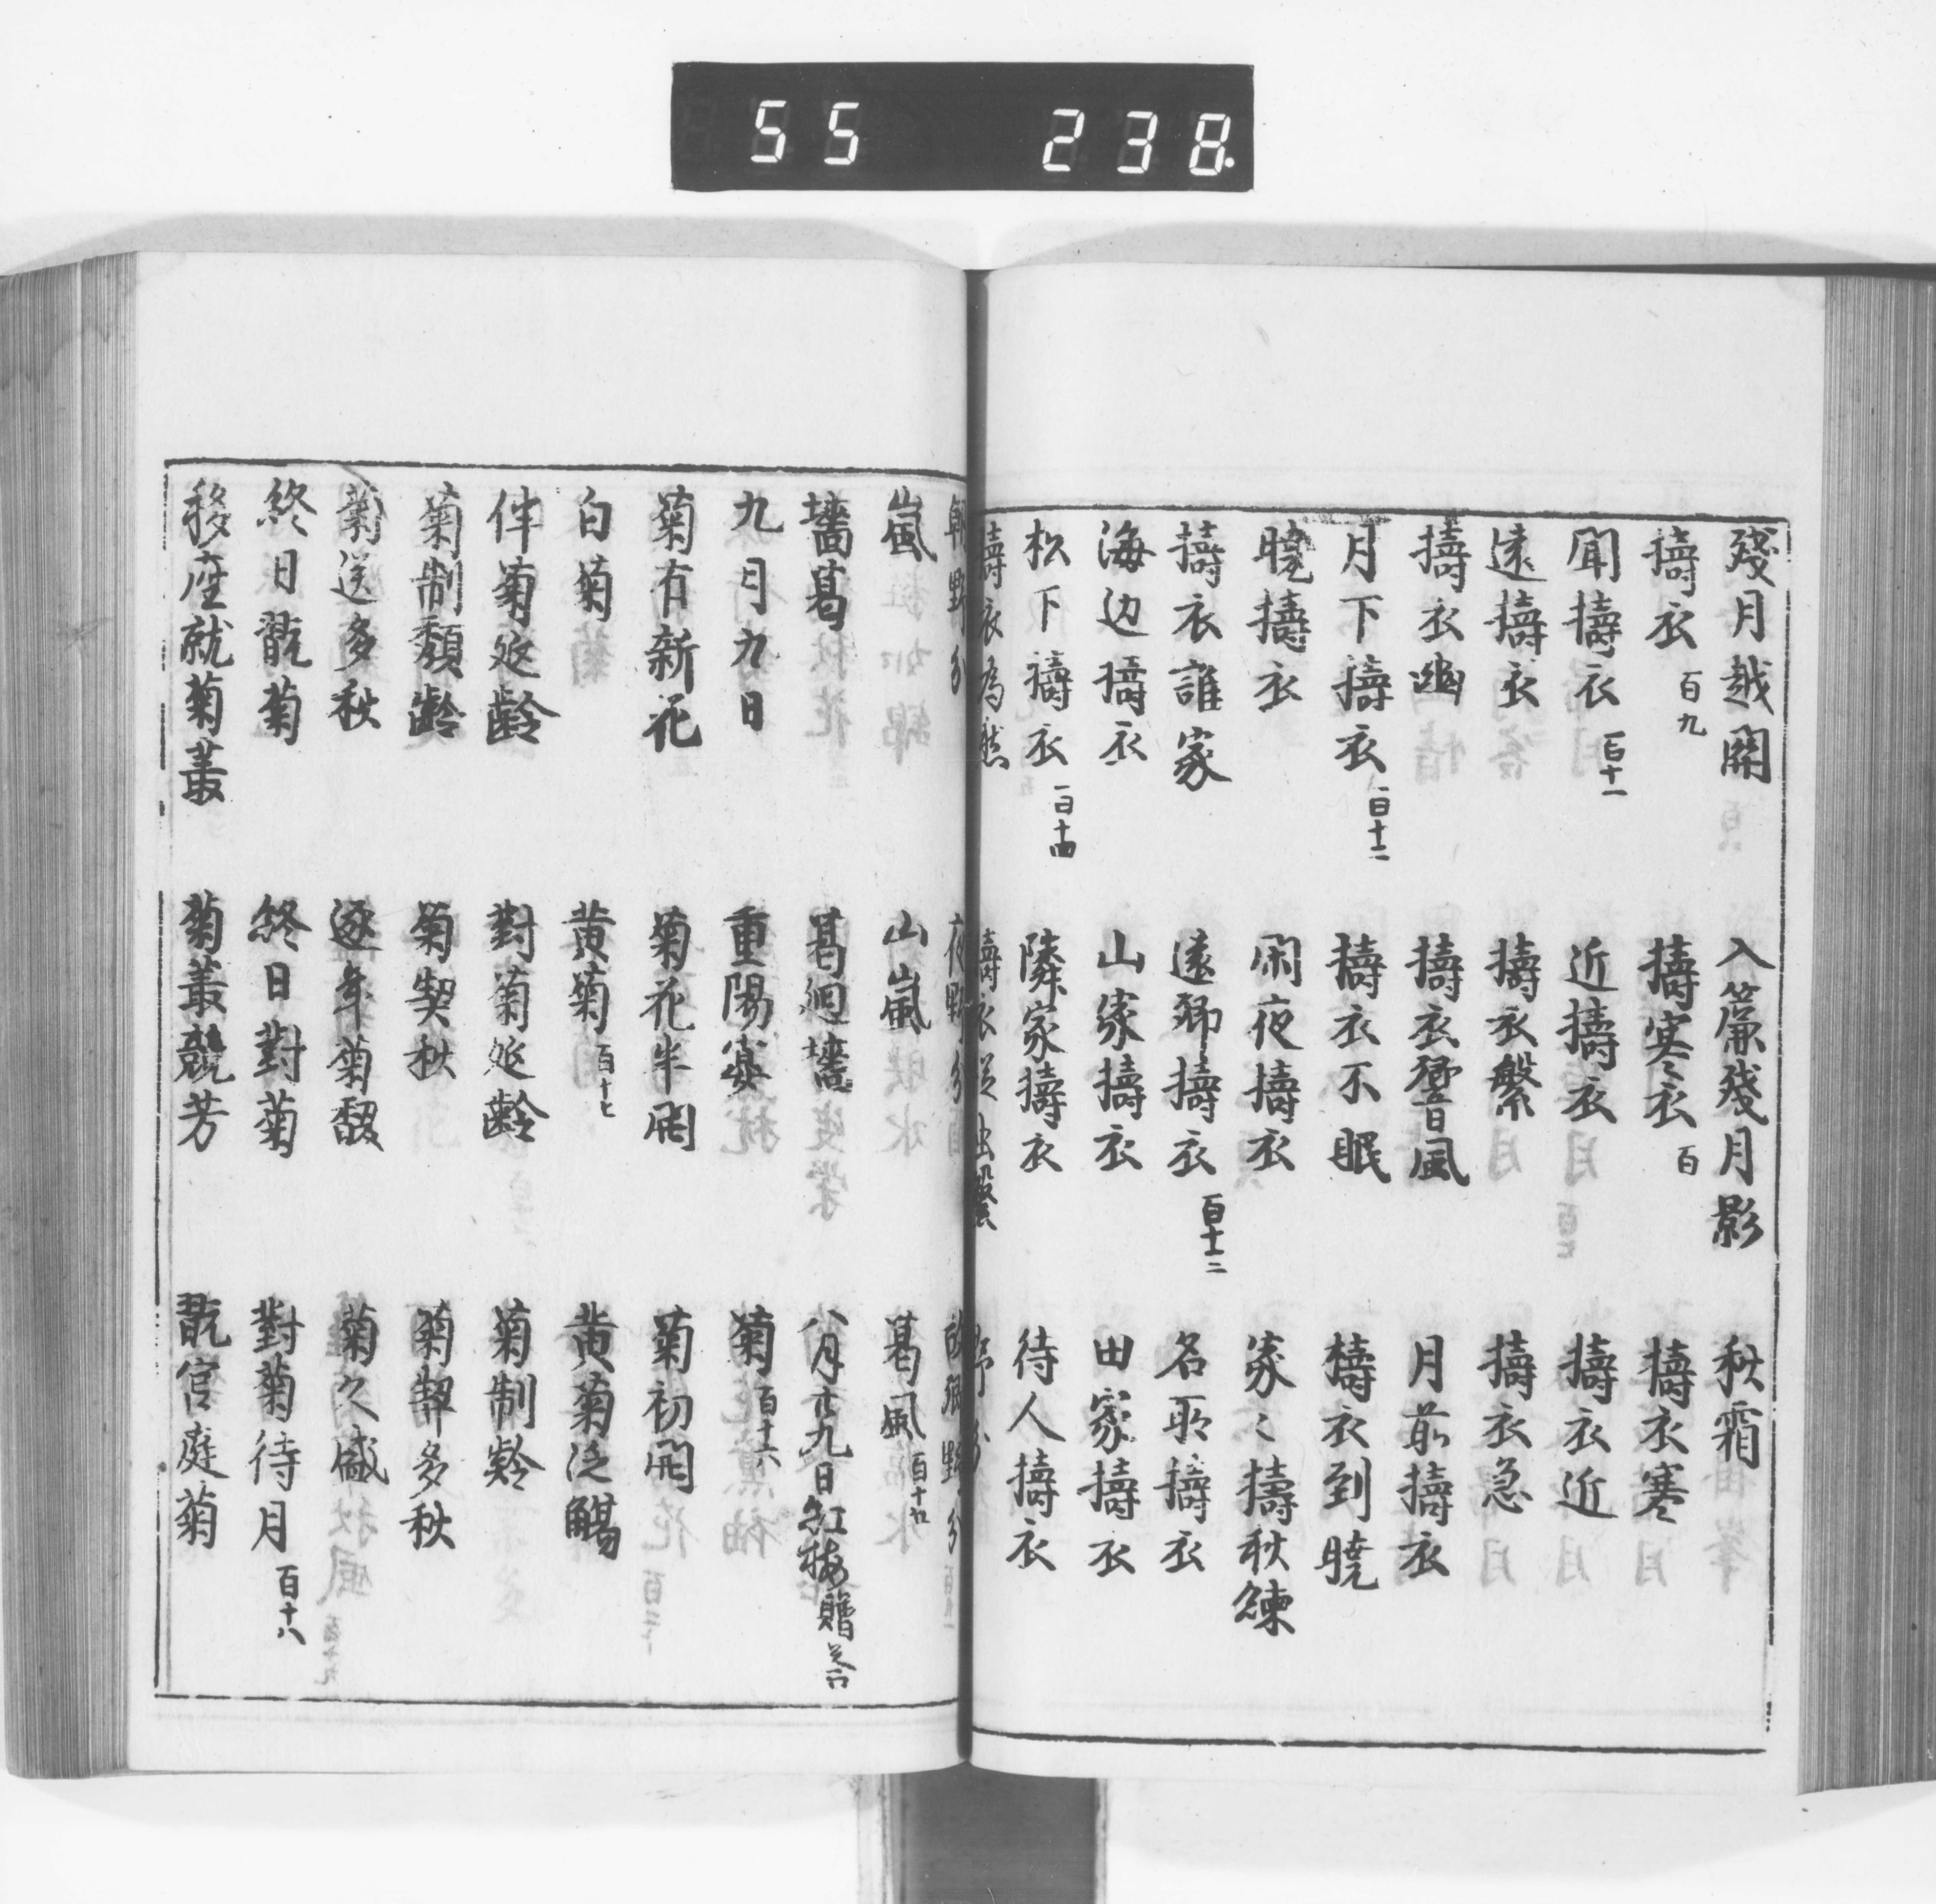 55 238.
殘月越関 入簾殘月影 秋霜
擣衣 百九 擣寒衣 百 擣衣寒
聞擣衣 百十一 近擣衣 擣衣近
遠擣衣 擣衣繁 擣衣急
擣衣幽 擣衣響風 月前擣衣
月下擣衣 百十二 擣衣不眠 擣衣到曉
曉擣衣 閑夜擣衣 家〻擣秋練
擣衣誰家 遠郷擣衣 百十三 名所擣衣
海辺擣衣 山家擣衣 田家擣衣
松下擣衣 百十四 隣家擣衣 待人擣衣
擣衣為愁 野分
嵐 山嵐 葛風
墻葛 葛廻墻 八月廿九日紅梅贈答
九月九日 重陽宴 菊 百十六
菊有新花 菊花半開 菊初開
白菊 黄菊 百十七 黄菊泛觴
伴菊延齡 對菊延齡 菊制齡
菊制頽齡 菊契秋 菊契多秋
菊送多秋 逐年菊馥 菊久盛
終日翫菊 終日對菊 對菊待月 百十八
移座就菊叢 菊叢競芳 翫宮庭菊